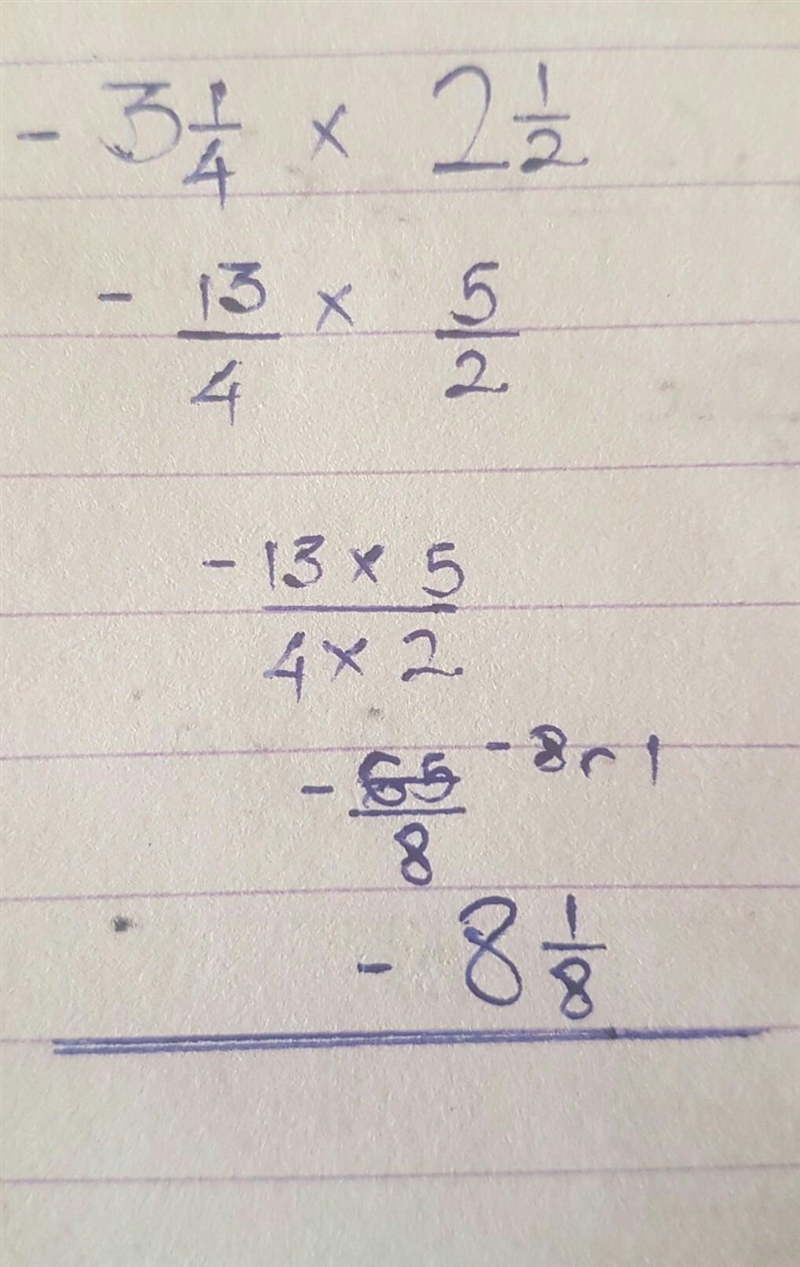 - 3 1/4 × 2 1/2
- 13/4 × 5/2
- 13 × 5
4 × 2
- 65/8 - 8 r 1
- 8 1/8